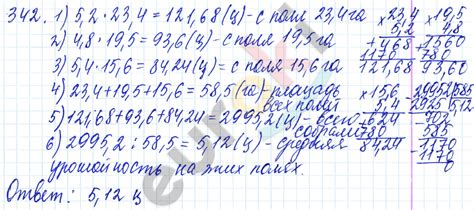 342. 1) 5,2 · 23,4 = 121,68 (ц) - с поля 23,4 га
2) 4,8 · 19,5 = 93,6 (ц) - с поля 19,5 га
3) 5,4 · 15,6 = 84,24 (ц) = с поля 15,6 га
4) 23,4 + 19,5 + 15,6 = 58,5 (га) - площадь
всех полей
5) 121,68 + 93,6 + 84,24 = 299,52 (ц) - всего
собрали
6) 299,52 : 58,5 = 5,12 (ц) - средняя
урожайность на этих полях.
Ответ: 5,12 ц
× 23,4
5,2
+ 468
1170
121,68
× 19,5
4,8
+ 1560
780
93,60
× 15,6
5,4
+ 624
780
84,24
2995,2 585
2925 5,12
702
585
1170
1170
0
euroki